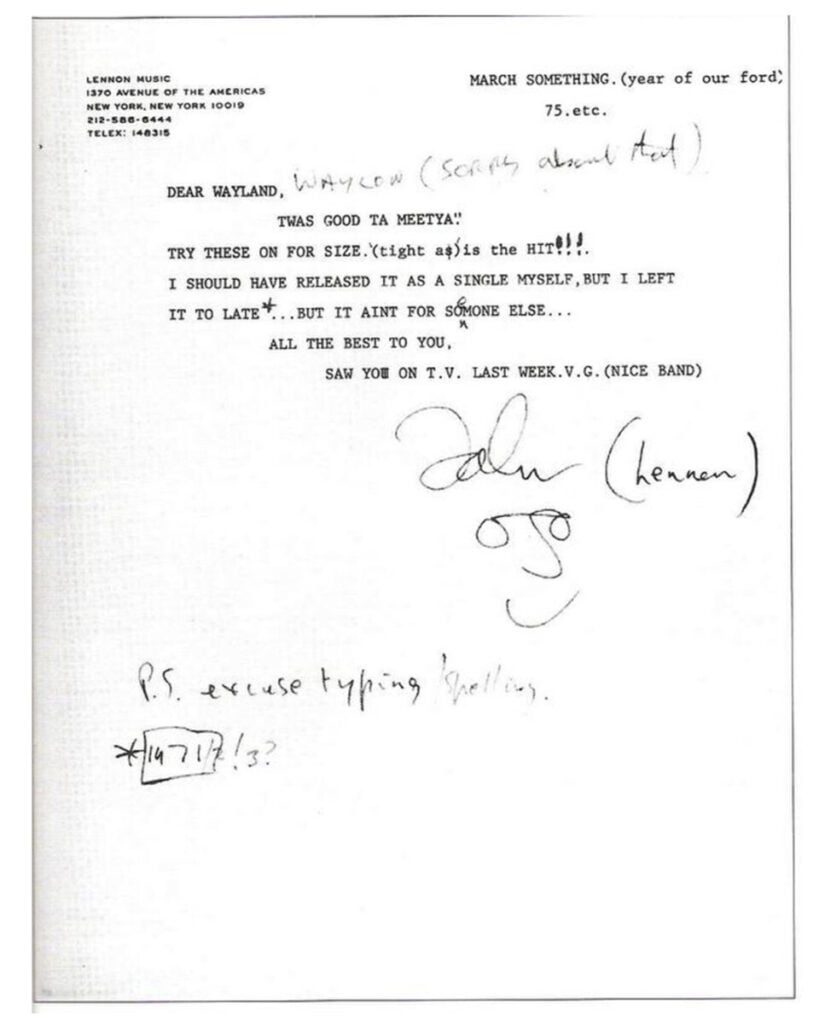 LENNON MUSIC
1370 AVENUE OF THE AMERICAS
NEW YORK, NEW YORK 10019
212-586-6444
TELEX: 148315
MARCH SOMETHING.(year of our ford)
75.etc.
DEAR WAYLAND, WAYLON (SORRY about that)
TWAS GOOD TA MEETYA!!
TRY THESE ON FOR SIZE.'(tight as)'is the HIT!!!.
I SHOULD HAVE RELEASED IT AS A SINGLE MYSELF,BUT I LEFT
IT TO LATE*...BUT IT AINT FOR SOMEONE ELSE...
ALL THE BEST TO YOU,
SAW YOU ON T.V. LAST WEEK.V.G.(NICE BAND)
John (Lennon)
P.S. excuse typing/spelling.
*